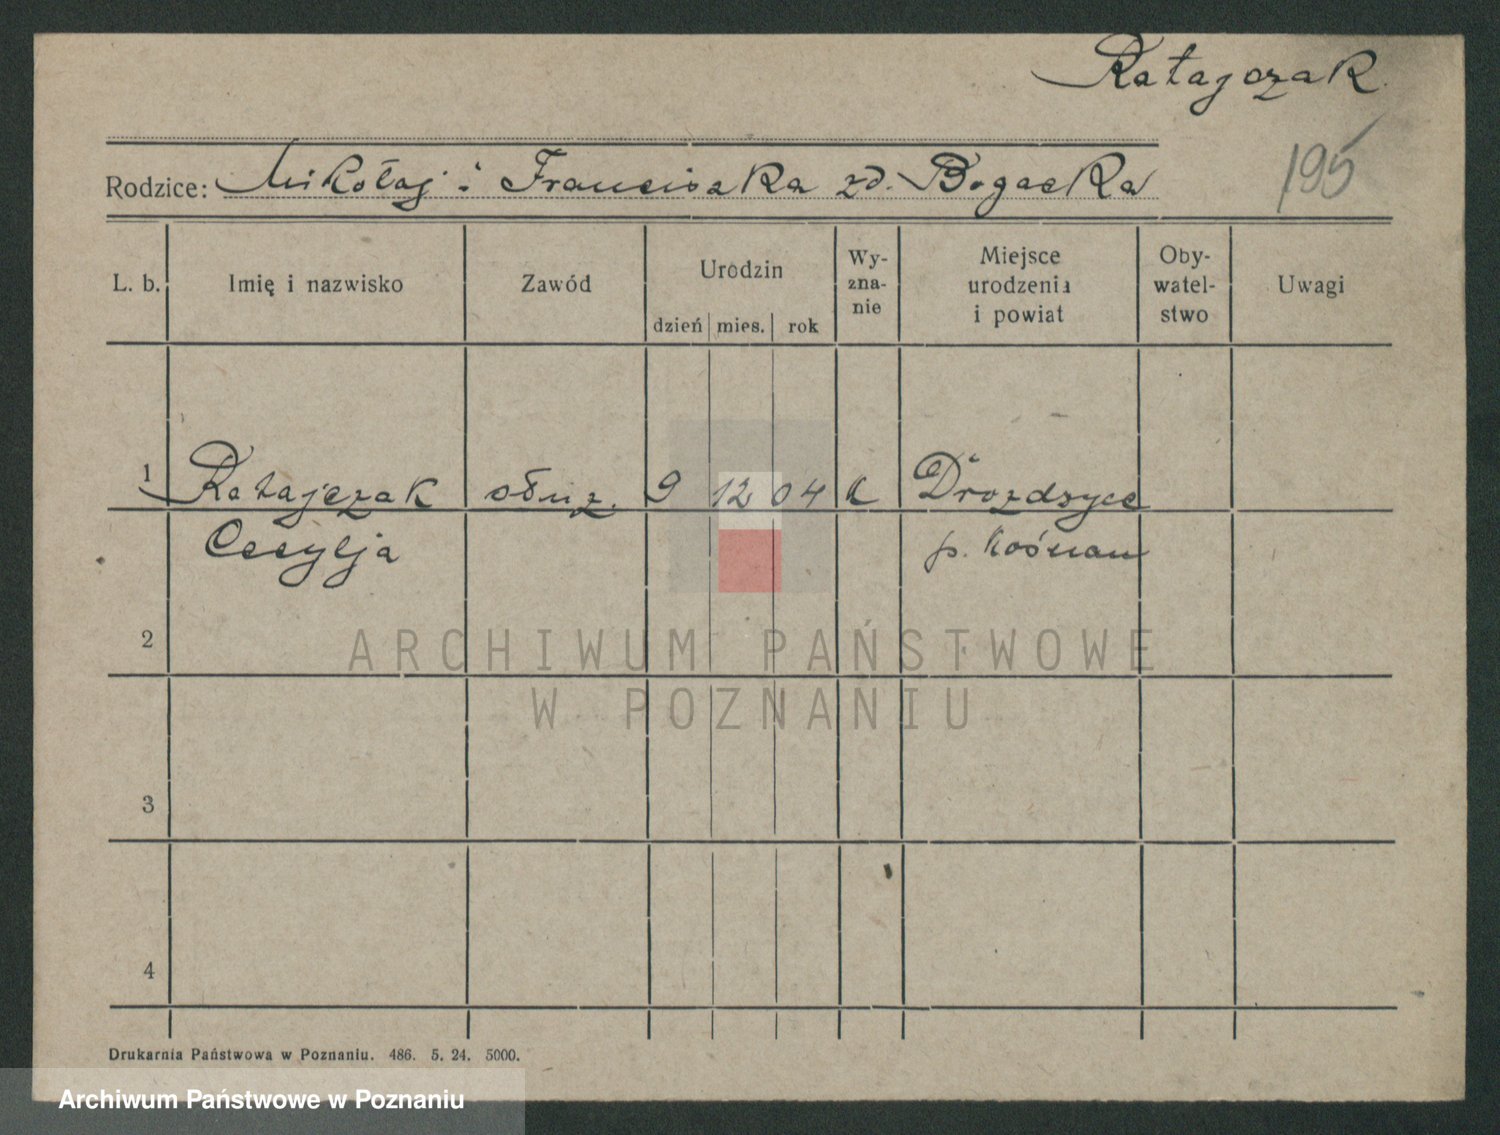 Ratajczak
195
Rodzice: Mikołaj i Franciszka zd. Bogacka
L. b. Imię i nazwisko Zawód Urodzin dzień mies. rok Wy-zna-nie Miejsce urodzenia i powiat Oby-watel-stwo Uwagi
1 Ratajczak służ. 9 12 04 k Drozdzyce
Cecylja p. Kośnan
2
ARCHIWUM PAŃSTWOWE
W POZNANIU
3
4
Drukarnia Państwowa w Poznaniu. 486. 5. 24. 5000.
Archiwum Państwowe w Poznaniu